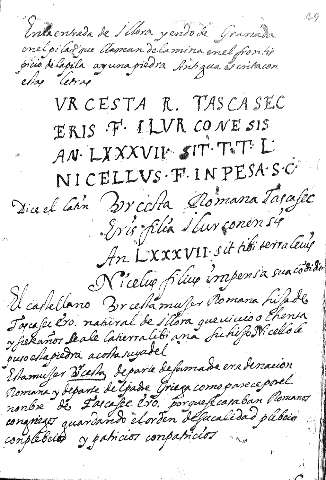 En la entrada de Illora yendo de Granada
en el pilar que llaman de la mina en el frontis
picio de la pila ay una piedra Antigua escrita con
estas letras
VRCESTA R. TASCASEC
ERIS · F · ILVRCONESIS
AN · LXXXVII · SIT · T · T · L ·
NICELLVS · F · INPESA · S · C ·
Dice el latin Urcesta Romana Tascasec
Eris filia Ilurconensis
An LXXXVII · sit tibi terra levis
Nicelus filius impensa sua
El castellano Urcesta muger Romana hija de
Tascasec Ero. natural de Illora que vivio ochenta
y siete años Nicello le
puso esta piedra a costa suya del
Esta muger Urcesta de parte de su madre era de nacion
Romana y de parte de padre Griega como parece por el
nonbre de Tascasec Ero. porque se casaban Romanos
con griegos guardando el orden de su calidad plebeio
con plebeio y patricios con patricios